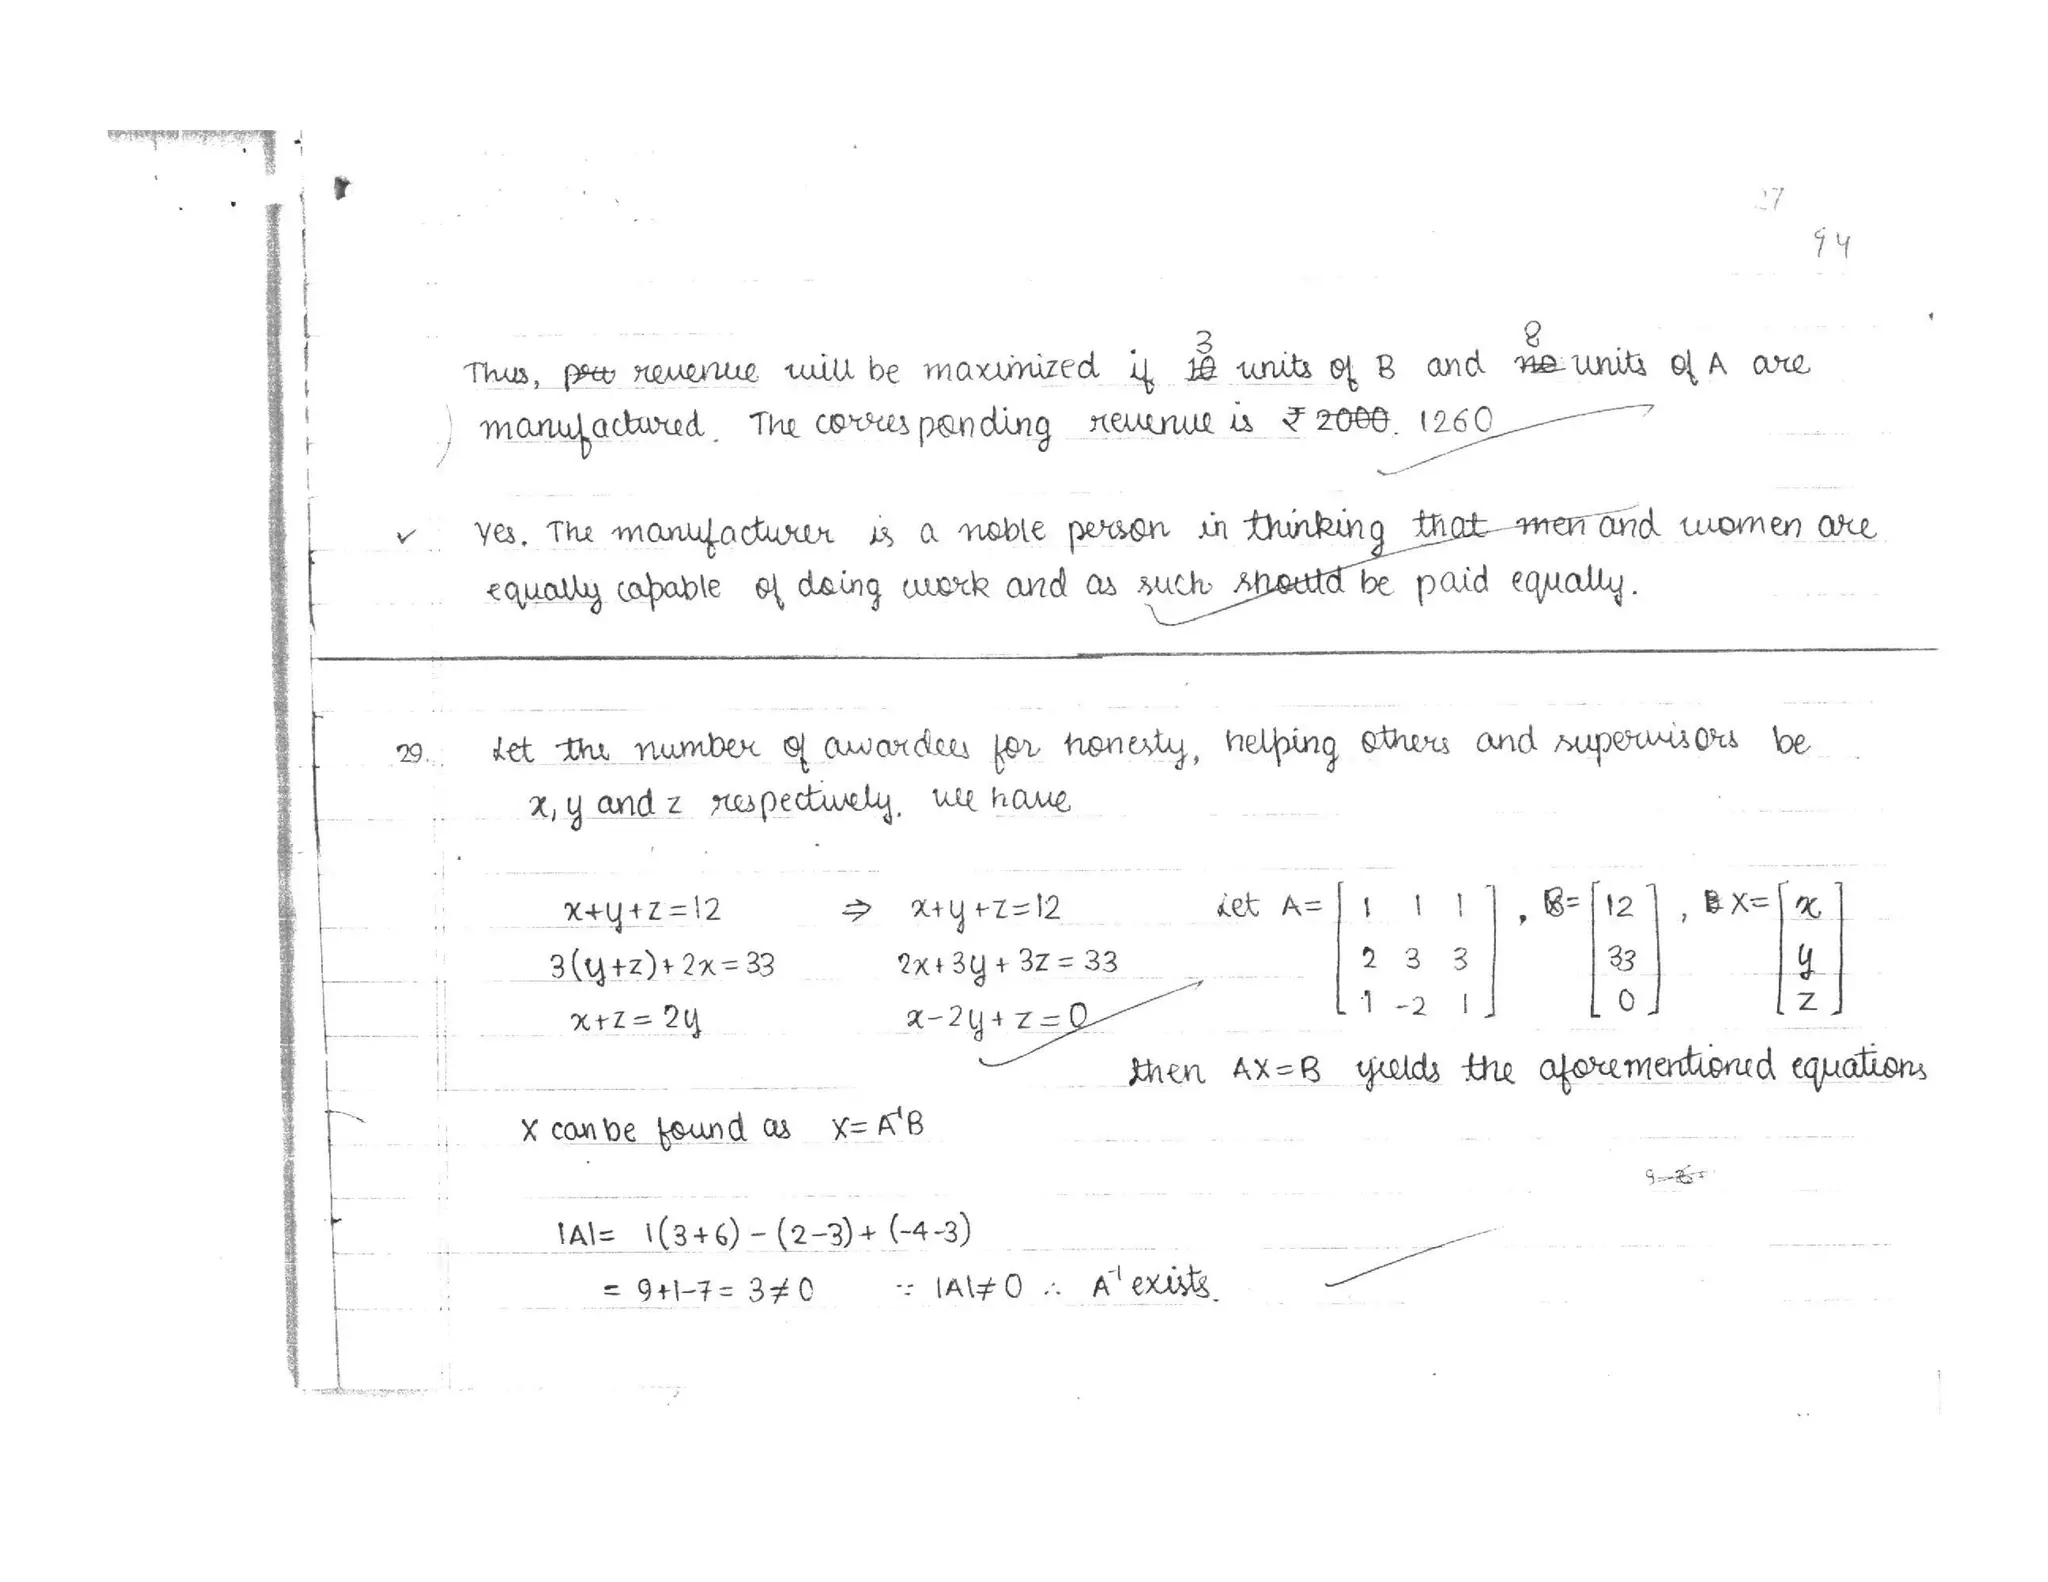 27
94
3 8
Thus, revenue will be maximized if units of B and units of A are
manufactured. The corresponding revenue is ₹ 2000. 1260
Yes. The manufacturer is a noble person in thinking that men and women are
equally capable of doing work and as such should be paid equally.
29. Let the number of awardees for honesty, helping others and supervisors be
x, y and z respectively. we have
x+y+z=12 ⇒ x+y+z=12 Let A= [1 1 1 , B= [12 , X= [x
3(y+z)+2x=33 2x+3y+3z=33 2 3 3 33 y
x+z=2y x-2y+z=0 1 -2 1] 0] z]
then AX=B yields the aforementioned equations
X can be found as X=A⁻¹B
|A|= 1(3+6)-(2-3)+(-4-3)
= 9+1-7= 3≠0 ∵ |A|≠0 ∴ A⁻¹ exists.